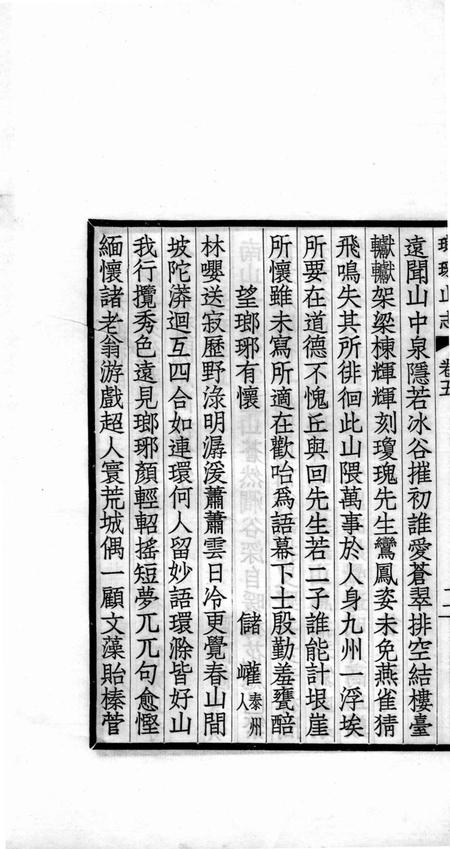 瑯琊山志
卷五
遠聞山中泉隱若冰谷摧初誰愛蒼翠排空結樓臺
巘巘架梁棟輝輝刻瓊瑰先生鸞鳳姿未免燕雀猜
飛鳴失其所徘徊此山隈萬事於人身九州一浮埃
所要在道德不愧丘與回先生若二子誰能計垠崖
所懷雖未寫所適在歡咍爲語幕下士殷勤羞甕醅
望瑯琊有懷 儲巏泰州人
林嚶送寂歷野淥明潺湲蕭蕭雲日冷更覺春山間
坡陀漭迴互四合如連環何人留妙語環滁皆好山
我行攬秀色遠見瑯琊顏輕軺搖短夢兀兀句愈慳
緬懷諸老翁游戲超人寰荒城偶一顧文藻貽榛菅